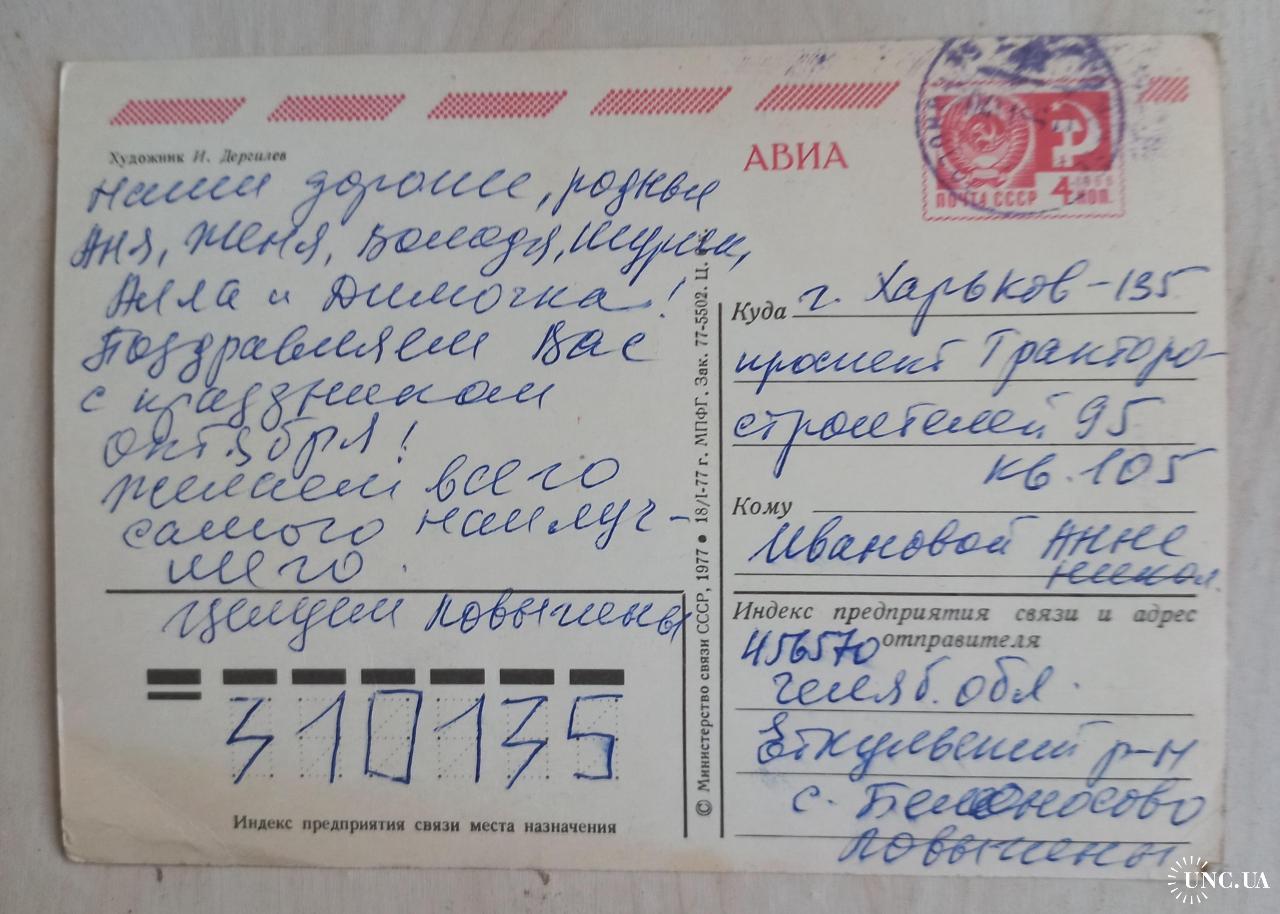 Художник И. Дергилев
АВИА
ПОЧТА СССР 4 КОП.
Наши дорогие, родные
Аня, Женя, Володя, Шурик,
Алла и Димочка!
Поздравляем Вас
с праздником
октября!
Желаем всего
самого наилуч-
шего.
Целуем Ловыгены
310135
Индекс предприятия связи места назначения
© Министерство связи СССР, 1977 ● 18/I-77 г. МПФГ. Зак. 77-5502. Ц.
Куда г. Харьков-135
проспект Тракторо-
строителей 95
кв. 105
Кому
Ивановой Анне
Никол.
Индекс предприятия связи и адрес
456570 отправителя
Челяб. обл.
Еткульский р-н
с. Белоносово
Ловыгены
UNC.UA